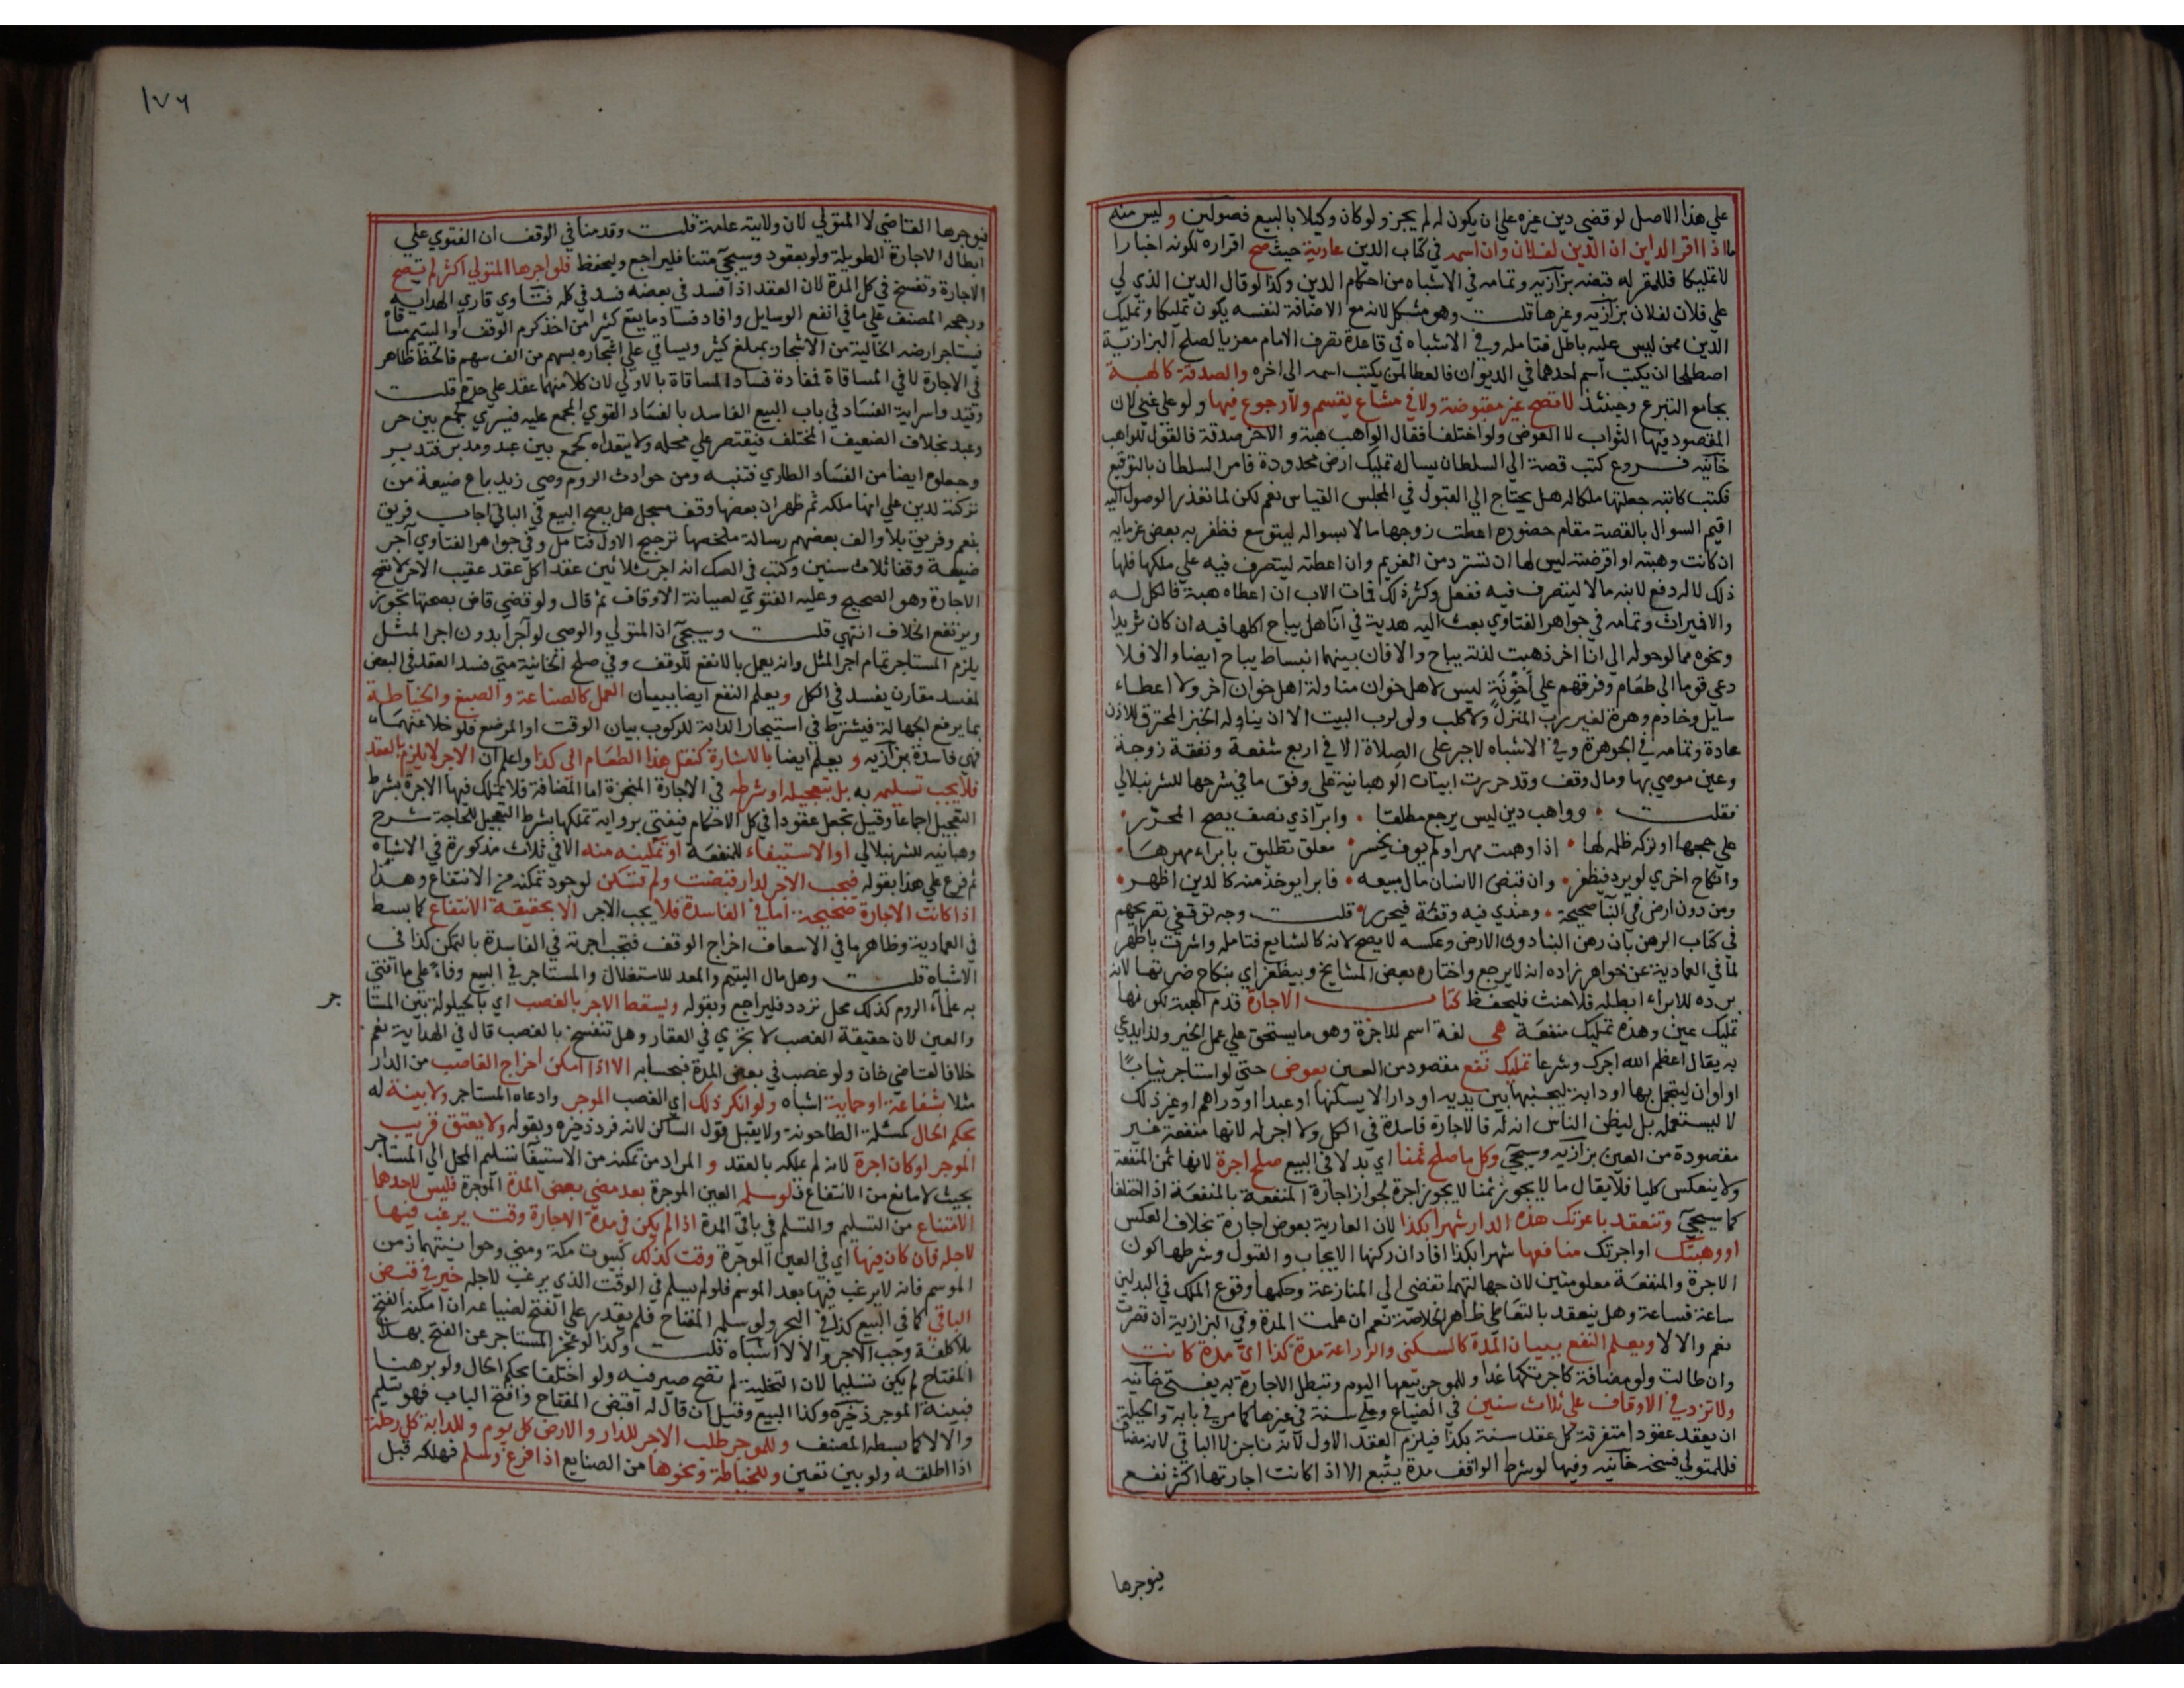 علي هذا الاصل لو قضي دين غيره علي ان يكون له لم يجز ولو كان وكيلا بالبيع فصولين وليس منه
ما اذا اقر الداين ان الدين لفلان وان اسمه في كتاب الدين عارية حيث صح اقراره لكونه اخبارا
لا تمليكا فللمقر له قبضه بزازيه وتمامه في الاشباه من احكام الدين وكذا لو قال الدين الذي لي
علي فلان لفلان بزازيه وغيرها قلت وهو مشكل لانه مع الاضافة لنفسه يكون تمليكا وتمليك
الدين ممن ليس عليه باطل فتامله وفي الاشباه في قاعدة تصرف الامام معزيا لصلح البزازية
اصطلحا ان يكتب اسم احدهما في الديوان فالعطا لمن يكتب اسمه الي اخره والصدقة كالهبة
بجامع التبرع وحينئذ لا تصح غير مقبوضة ولا في مشاع يقسم ولا رجوع فيها ولو علي غني لان
المقصود فيها الثواب لا العوض ولو اختلفا فقال الواهب هبة والاخر صدقة فالقول للواهب
خانيه فروع كتب قصة الي السلطان يساله تمليك ارض محدودة فامر السلطان بالتوقيع
فكتب كاتبه جعلتها ملكا له هل يحتاج الي القبول في المجلس القياس نعم لكن لما تعذر الوصول اليه
اقيم السوال بالقصة مقام حضوره اعطت زوجها مالا بسواله ليتوسع فظفر به بعض غرمايه
ان كانت وهبته او اقرضته ليس لها ان تسترد من الغريم وان اعطته ليتصرف فيه علي ملكها فلها
ذلك لا له دفع لابنه مالا ليتصرف فيه ففعل وكثر ذلك فمات الاب ان اعطاه هبة فالكل له
والا فميراث وتمامه في جواهر الفتاوي بعث اليه هدية في آنا هل يباح اكلها فيه ان كان ثريدا
ونحوه مما لو حوله الي انا اخر ذهبت لذته يباح والا فان بينهما انبساط يباح ايضا والا فلا
دعي قوما الي طعام وفرقهم علي اخونة ليس لاهل خوان مناولة اهل خوان اخر ولا اعطاء
سايل وخادم وهرة لغير رب المنزل ولا كلب ولو لرب البيت الا ان يناوله الخبز المحترق للاذن
عادة وتمامه في الجوهرة وفي الاشباه لا جبر علي الصلاة الا في اربع شفعة ونفقة زوجة
وعين موصي بها ومال وقف وقد حررت ابيات الوهبانية علي وفق ما في شرحها للشرنبلالي
فقلت وواهب دين ليس يرجع مطلقا وابرا ذي نصف يصح المحرر
علي حجها او تركه ظلمه لها اذا وهبت مهرا ولم يوف يخسر معلق تطليق بابراء مهرها
وانكاح اخري لو يرد فيظفر وان قبض الانسان مال مبيعه فابرا يوخذ منه كالدين اظهر
ومن دون ارض في البنا صحيحة وعندي فيه وقفة فيحرر قلت وجه توقفي تصريحهم
في كتاب الرهن بان رهن البنا دون الارض وعكسه لا يصح لانه كالشايع فتامله واشرت باظهر
لما في العمادية عن خواهر زاده انه لا يرجع واختاره بعض المشايخ وبيظفر اي بنكاح ضرتها لانه
برده للابراء ابطله فلا حنث فليحفظ كتاب الاجارة قدم الهبة لكونها
تمليك عين وهذه تمليك منفعة هي لغة اسم للاجرة وهو ما يستحق علي عمل الخير ولذا يدعي
به يقال اعظم الله اجرك وشرعا تمليك نفع مقصود من العين بعوض حتي لو استاجر ثيابا
او اواني ليتجمل بها او دابة ليجنبها بين يديه او دارا لا يسكنها او عبدا او دراهم او غير ذلك
لا ليستعمله بل ليظن الناس انه له فالاجارة فاسدة في الكل ولا اجر له لانها منفعة غير
مقصودة من العين بزازيه وسيجي وكل ما صلح ثمنا اي بدلا في البيع صلح اجرة لانها ثمن المنفعة
ولا ينعكس كليا فلا يقال ما لا يجوز ثمنا لا يجوز اجرة لجواز اجارة المنفعة بالمنفعة اذا اختلفا
كما سيجي وتنعقد باعرتك هذه الدار شهرا بكذا لان العارية بعوض اجارة بخلاف العكس
او وهبتك او اجرتك منافعها شهرا بكذا افاد ان ركنها الايجاب والقبول وشرطها كون
الاجرة والمنفعة معلومتين لان جهالتهما تفضي الي المنازعة وحكمها وقوع الملك في البدلين
ساعة فساعة وهل ينعقد بالتعاطي ظاهر الخلاصة نعم ان علمت المدة وفي البزازية ان قصرت
نعم والا لا ويعلم النفع ببيان المدة كالسكني والزراعة مدة كذا اي مدة كانت
وان طالت ولو مضافة كاجرتكها غدا وللموجر بيعها اليوم وتبطل الاجارة به يفتي خانيه
ولا تزد في الاوقاف علي ثلاث سنين في الضياع وعلي سنة في غيرها كما مر في بابه والحيلة
ان يعقد عقودا متفرقة كل عقد سنة بكذا فيلزم العقد الاول لانه ناجز لا الباقي لانه مضاف
فللمتولي فسخه خانيه وفيها لو شرط الواقف مدة يتبع الا اذا كانت اجارتها اكثر نفع
فيوجرها
١٧٦
فيوجرها القاضي لا المتولي لان ولايته عامة قلت وقدمنا في الوقف ان الفتوي علي
ابطال الاجارة الطويلة ولو بعقود وسيجي متنا فليراجع وليحفظ فلو اجرها المتولي اكثر لم تصح
الاجارة وتفسخ في كل المدة لان العقد اذا فسد في بعضه فسد في كله فتاوي قاري الهدايه
ورجحه المصنف علي ما في انفع الوسايل وافاد فساد ما يقع كثيرا من اخذ كرم الوقف او اليتيم مساقاة
فيستاجر ارضه الخالية من الاشجار بمبلغ كثير ويساقي علي اشجاره بسهم من الف سهم فالحظ ظاهر
في الاجارة لا في المساقاة فمفاده فساد المساقاة بالاولي لان كلا منهما عقد علي حدة قلت
وقيد سراية الفساد في باب البيع الفاسد بالفساد القوي المجمع عليه فيسري كجمع بين حر
وعبد بخلاف الضعيف المختلف فيقتصر علي محله ولا يتعداه كجمع بين عبد ومدبر فتدبر
وجعلوه ايضا من الفساد الطاري فتنبه ومن حوادث الروم وصي زيد باع ضيعة من
تركته لدين علي انها ملكه ثم ظهر ان بعضها وقف مسجل هل يصح البيع في الباقي اجاب فريق
بنعم وفريق بلا والف بعضهم رسالة ملخصها ترجيح الاول فتامل وفي جواهر الفتاوي آجر
ضيعة وقفا ثلاث سنين وكتب في الصك انه اجر ثلاثين عقدا كل عقد عقيب الاخر لا تصح
الاجارة وهو الصحيح وعليه الفتوي لصيانة الاوقاف ثم قال ولو قضي قاض بصحتها تجوز
ويرتفع الخلاف انتهي قلت وسيجي ان المتولي والوصي لو آجرا بدون اجر المثل
يلزم المستاجر تمام اجر المثل وانه يعمل بالانفع للوقف وفي صلح الخانية متي فسد العقد في البعض
لمفسد مقارن يفسد في الكل ويعلم النفع ايضا ببيان العمل كالصناعة والصبغ والخياطة
بما يرفع الجهالة فيشترط في استيجار الدابة للركوب بيان الوقت او الموضع فلو خلا عنهما
فهي فاسدة بزازيه ويعلم ايضا بالاشارة كنقل هذا الطعام الي كذا واعلم ان الاجر لا يلزم بالعقد
فلا يجب تسليمه به بل بتعجيله او شرطه في الاجارة المنجزة اما المضافة فلا تملك فيها الاجرة بشرط
التعجيل اجماعا وقيل تجعل عقودا في كل الاحكام فيفتي برواية تملكها بشرط التعجيل للحاجة شرح
وهبانيه للشرنبلالي او الاستيفاء للمنفعة او تمكينه منه الا في ثلاث مذكورة في الاشباه
ثم فرع علي هذا بقوله فيجب الاجر لدار قبضت ولم تسكن لوجود تمكنه من الانتفاع وهذا
اذا كانت الاجارة صحيحة اما في الفاسدة فلا يجب الاجر الا بحقيقة الانتفاع كما بسط
في العمادية وظاهر ما في الاسعاف اخراج الوقف فتجب اجرته في الفاسدة بالتمكن كذا في
الاشباه قلت وهل مال اليتيم والمعد للاستغلال والمستاجر في البيع وفاء علي ما افتي
به علماء الروم كذلك محل تردد فليراجع وبقوله ويسقط الاجر بالغصب اي بالحيلولة بين المستا
جر
والعين لان حقيقة الغصب لا تجري في العقار وهل تنفسخ بالغصب قال في الهداية نعم
خلافا لقاضي خان ولو غصب في بعض المدة فبحسابه الا اذا امكن اخراج الغاصب من الدار
مثلا بشفاعة او حماية اشباه ولو انكر ذلك اي الغصب الموجر وادعاه المستاجر ولا بينة له
يحكم الحال كمسئلة الطاحونة ولا يقبل قول الساكن لانه فرد ذخيره وبقوله ولا يعتق قريب
الموجر لو كان اجرة لانه لم يملكه بالعقد والمراد من تمكنه من الاستيفا تسليم المحل الي المستاجر
بحيث لا مانع من الانتفاع فلو سلم العين الموجرة بعد مضي بعض المدة الموجرة فليس لاحدهما
الامتناع من التسليم والتسلم في باقي المدة اذا لم يكن في مدة الاجارة وقت يرغب فيها
لاجله فان كان فيها اي في العين الموجرة وقت كذلك كبيوت مكة ومني وحوانيتهما زمن
الموسم فانه لا يرغب فيها بعد الموسم فلو لم يسلم في الوقت الذي يرغب لاجله خير في قبض
الباقي كما في البيع كذا في البحر ولو سلمه المفتاح فلم يقدر علي الفتح لضياعه ان امكنه الفتح
بلا كلفة وجب الاجر والا لا اشباه قلت وكذا لو عجز المستاجر عن الفتح بهذا
المفتاح لم يكن تسليما لان التخلية لم تصح صيرفيه ولو اختلفا يحكم الحال ولو برهنا
فبينة الموجر ذخيره وكذا البيع وقيل ان قال له اقبض المفتاح وافتح الباب فهو تسليم
والا لا كما بسطه المصنف وللموجر طلب الاجر للدار والارض كل يوم وللدابة كل مرحلة
اذا اطلقه ولو بين تعين وللخياطة ونحوها من الصنايع اذا فرغ وسلم فهلكه قبل